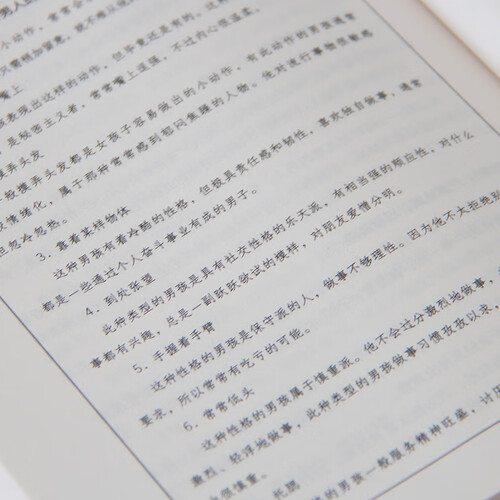 男人的
小动作,
嘴上
表现出这样的动作,但毕竟还是有的。这
是秘密主义者,常常嘴上逞强,不过内心很温柔。
摆弄头发
般摆弄头发都是女孩子容易做出的小动作,有此动作的男孩通常
情绪化,属于那种常常感到郁闷焦躁的人物。他对流行事物很敏感
但忽冷忽热。
3. 靠着某样物体
这种男孩有着冷酷的性格,但极具责任感和韧性,喜欢独自做事,通常
都是一些通过个人奋斗事业有成的男子。
4. 到处张望
此种类型的男孩是具有社交性格的乐天派,有相当强的顺应性,对什么
事都有兴趣,总是一副跃跃欲试的模样,对朋友爱憎分明。
5. 手握着手臂
这种性格的男孩是保守派的人,做事不够理性。因为他不太拒绝别
要求,所以常常有吃亏的可能。
6. 常常低头
这种性格的男孩属于慎重派。他不会过分激烈地做事,
激烈、轻浮地做事,此种类型的男孩做事习惯孜孜以求,
也很慎重。
托腮
的男孩一般服务精神旺盛,讨厌